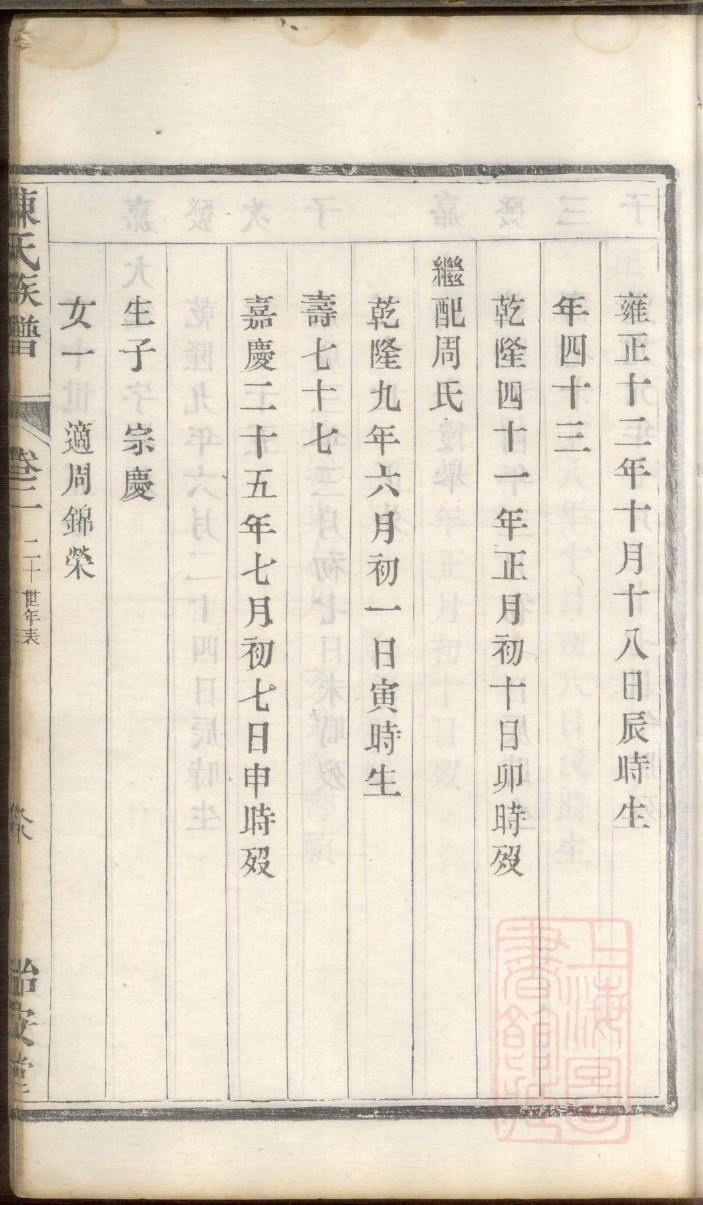 雍正十二年十月十八日辰時生
年四十三
乾隆四十一年正月初十日卯時歿
繼配周氏
乾隆九年六月初一日寅時生
壽七十七
嘉慶二十五年七月初七日申時歿
生子宗慶
女一適周錦榮
陳氏族譜
卷二
二十世年表
怡安堂
上海圖書館藏